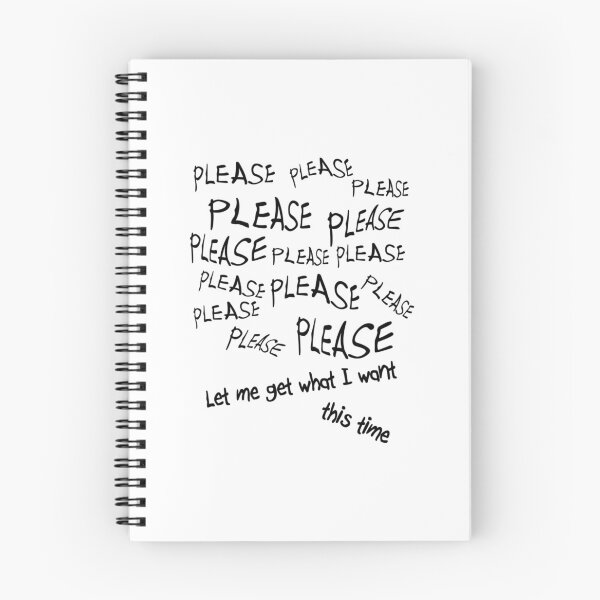 PLEASE PLEASE PLEASE
PLEASE PLEASE
PLEASE PLEASE PLEASE
PLEASE PLEASE PLEASE
PLEASE
PLEASE PLEASE
Let me get what I want
this time